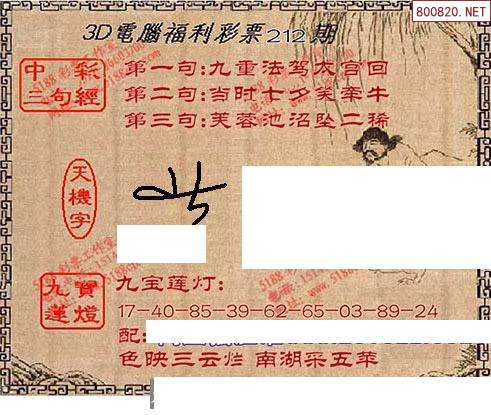 800820.NET
3D電腦福利彩票212期
中彩
三句經
第一句:九重法驾太宫回
第二句:当时七夕笑牵牛
第三句:芙蓉池沼坠二稀
天機字
九寶
蓮燈
九宝莲灯:
17-40-85-39-62-65-03-89-24
配:
色映三云烂 南湖采五苹